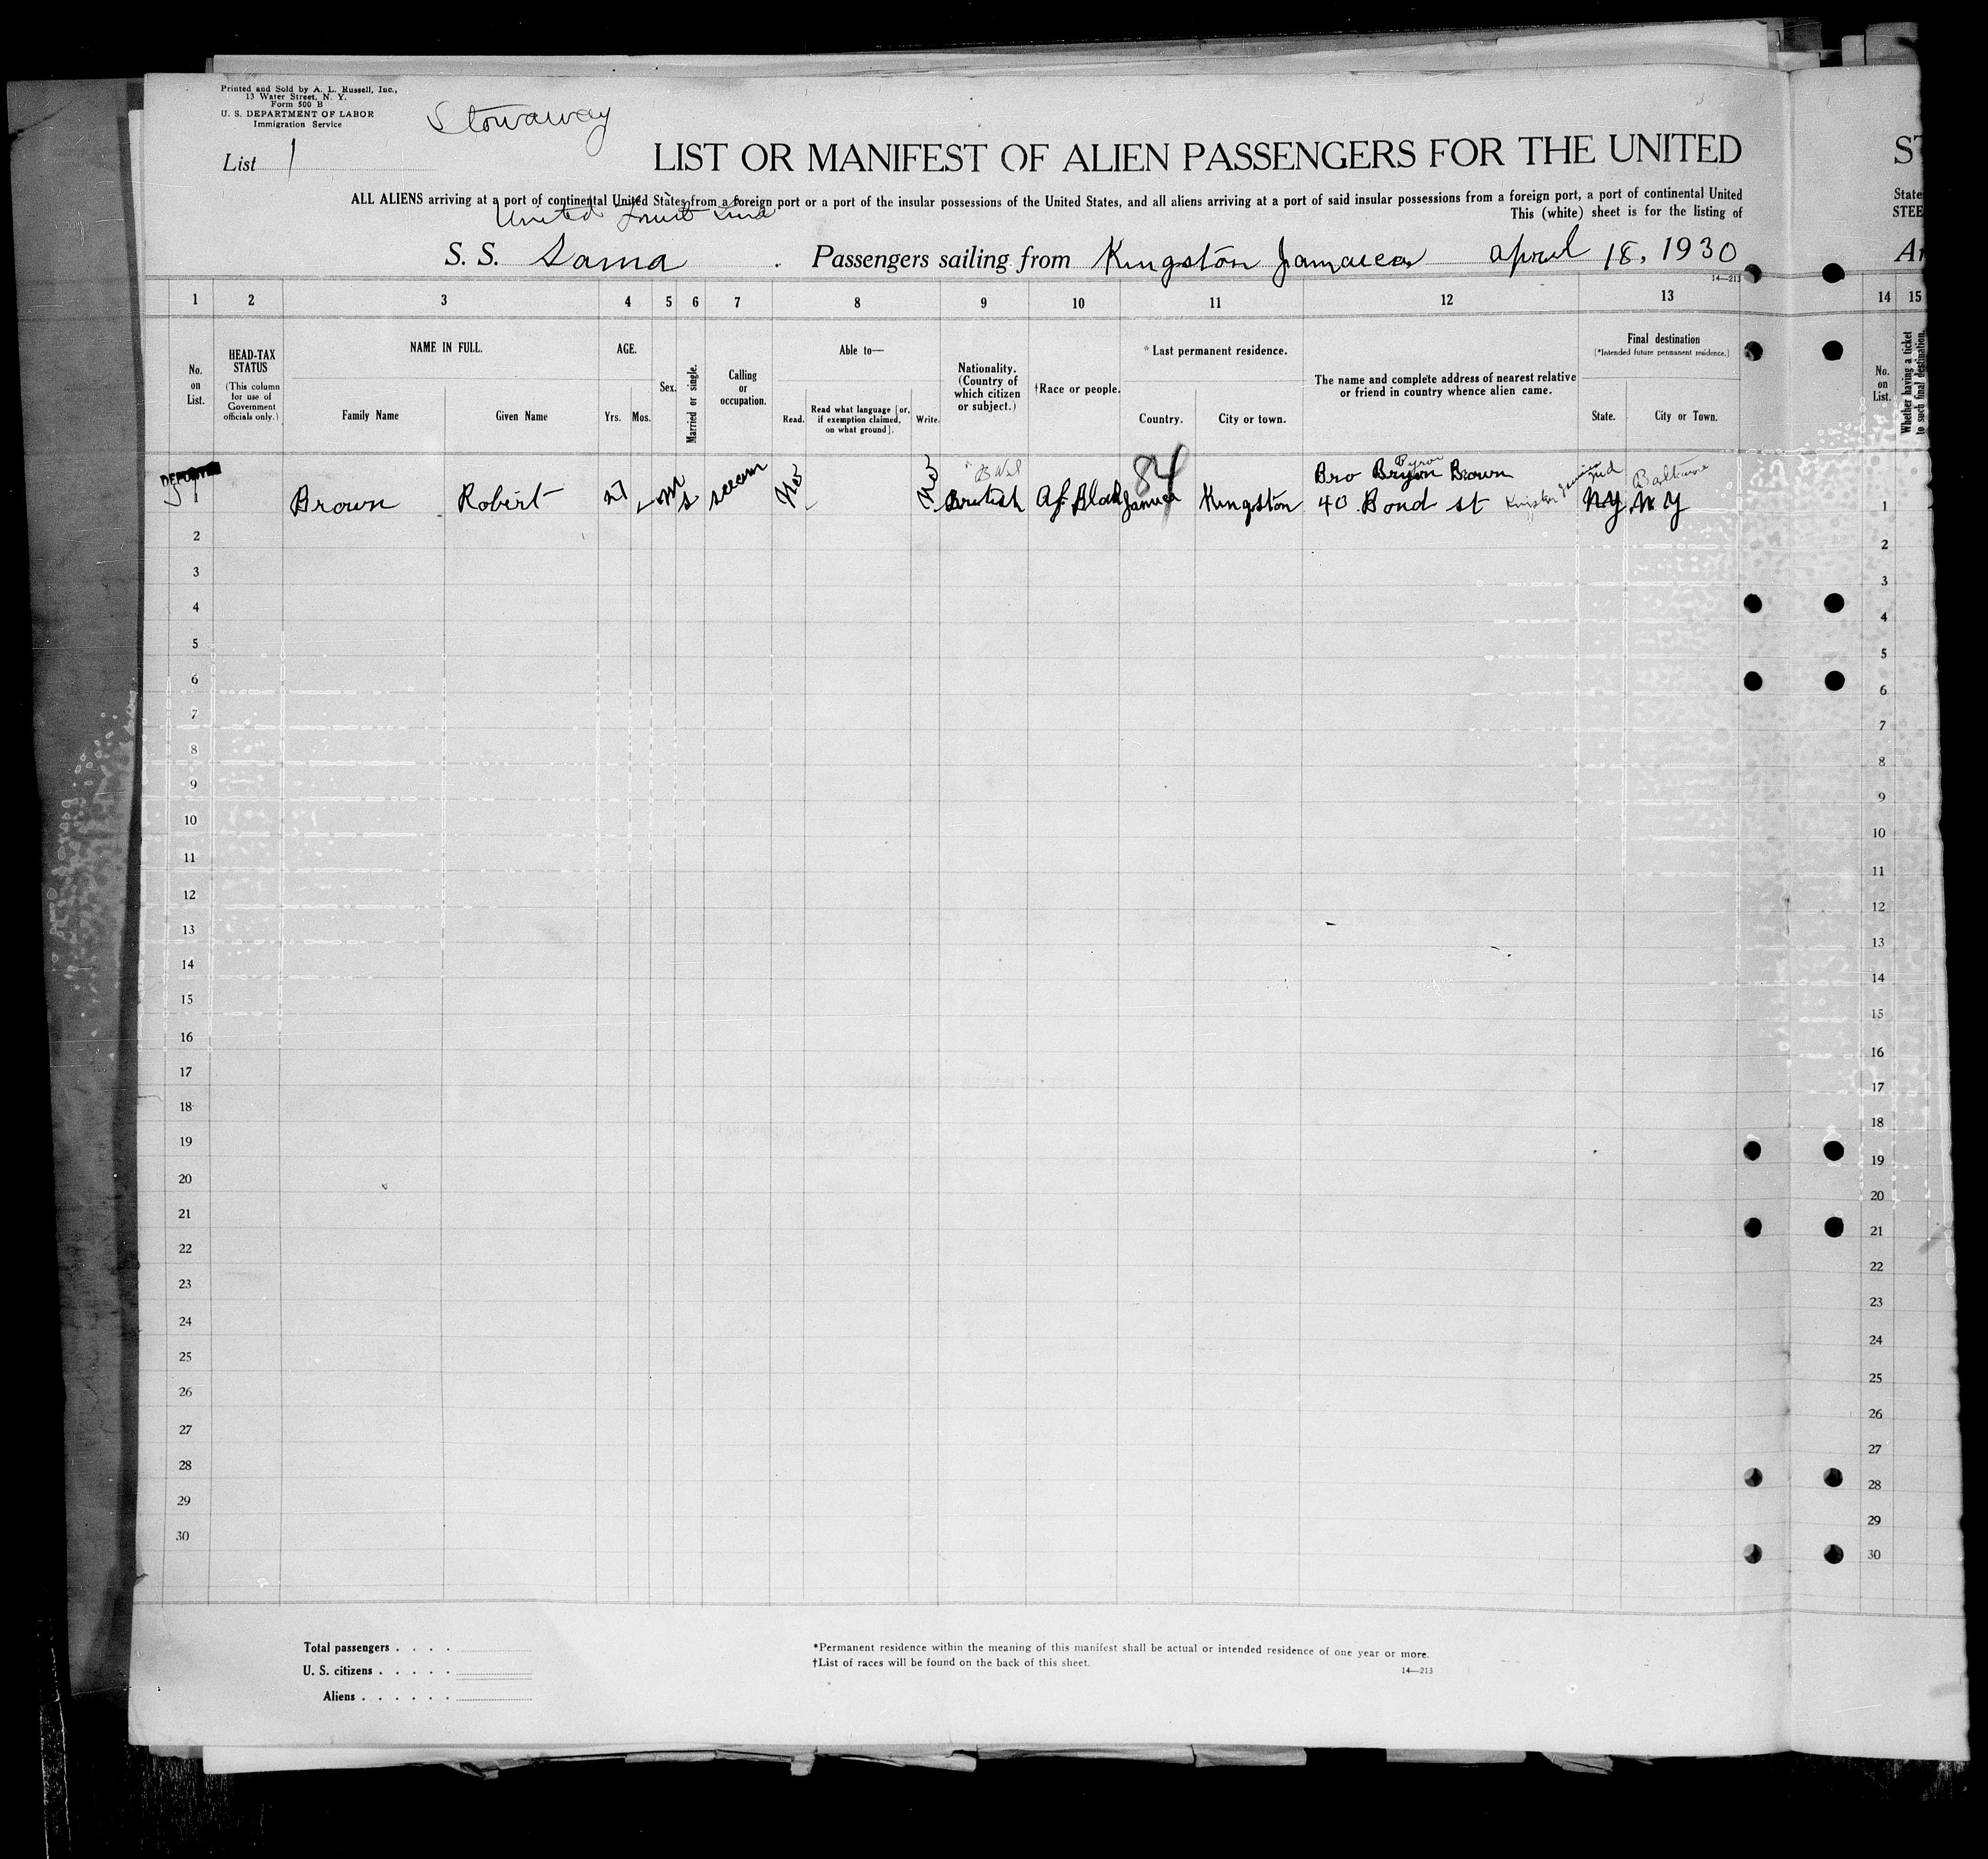 Printed and Sold by A. L. Russell, Inc.,
13 Water Street, N. Y.
Form 500 B
U. S. DEPARTMENT OF LABOR
Immigration Service
Stowaway
List 1
LIST OR MANIFEST OF ALIEN PASSENGERS FOR THE UNITED
ST
ALL ALIENS arriving at a port of continental United States from a foreign port or a port of the insular possessions of the United States, and all aliens arriving at a port of said insular possessions from a foreign port, a port of continental United
State
This (white) sheet is for the listing of
STEE
United Fruit Line
S. S. Sama . Passengers sailing from Kingston Jamaica april 18, 1930
14—213
1 2 3 4 5 6 7 8 9 10 11 12 13 14 15
No. on List.
HEAD-TAX STATUS
(This column for use of Government officials only.)
NAME IN FULL.
Family Name
Given Name
AGE.
Yrs.
Mos.
Sex.
Married or single.
Calling or occupation.
Able to—
Read.
Read what language [or, if exemption claimed, on what ground].
Write.
Nationality. (Country of which citizen or subject.)
†Race or people.
*Last permanent residence.
Country.
City or town.
The name and complete address of nearest relative or friend in country whence alien came.
Final destination
[*Intended future permanent residence.]
State.
City or Town.
No. on List.
Whether having a ticket to such final destination.
DEPORTED
84
B W I
Byron
Bro Bryon Brown
Md Baltimore
1 Brown Robert 27 m s seaman No No British Af. Black Jamaica Kingston 40 Bond st Kingston Jamaica NY N Y 1
2 2
3 3
4 4
5 5
6 6
7 7
8 8
9 9
10 10
11 11
12 12
13 13
14 14
15 15
16 16
17 17
18 18
19 19
20 20
21 21
22 22
23 23
24 24
25 25
26 26
27 27
28 28
29 29
30 30
Total passengers . . . .
U. S. citizens . . . . .
Aliens . . . . . .
*Permanent residence within the meaning of this manifest shall be actual or intended residence of one year or more.
†List of races will be found on the back of this sheet.
14—213